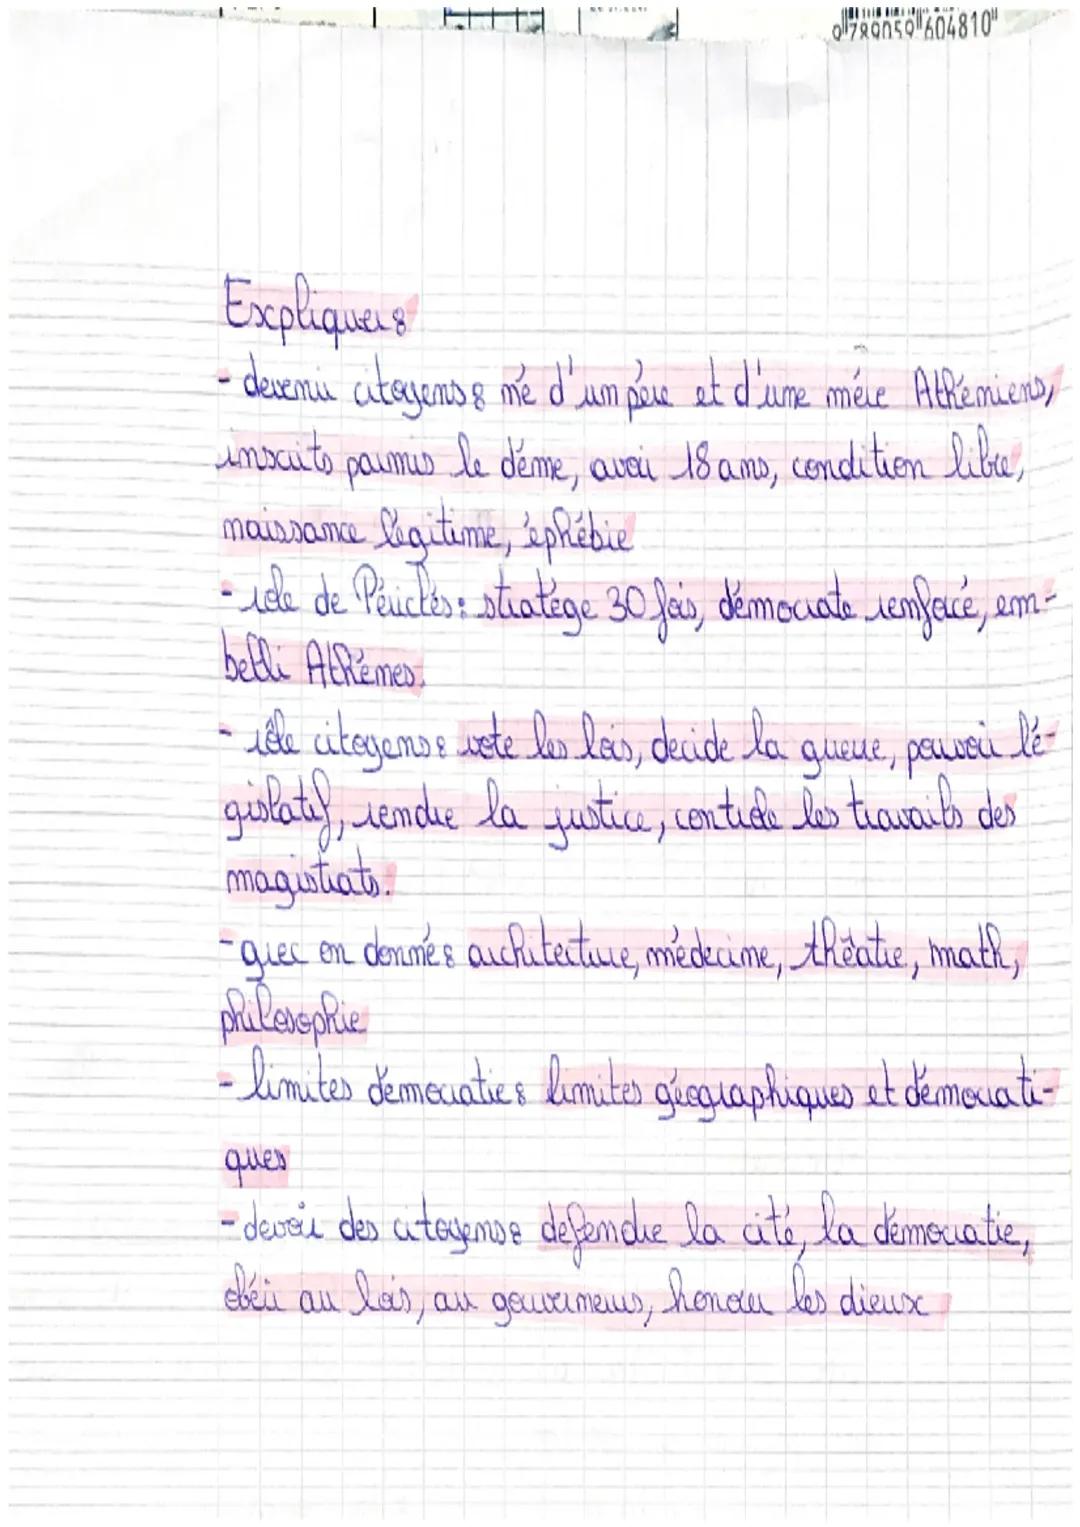 9 789059 604810
Expliquer :
- devenir citoyens : né d'un père et d'une mère Athéniens,
inscrits parmis le dème, avoir 18 ans, condition libre,
naissance légitime, éphébie
- role de Périclès : stratège 30 fois, démocrate renforcé, em-
belli Athènes.
- rôle citoyens : vote les lois, decide la guerre, pouvoir lé-
gislatif, rendre la justice, controle les travails des
magistrats.
- grec on donnés : architecture, médecine, théatre, math,
philosophie
- limites démocratie : limites géographiques et démocrati-
ques
- devoir des citoyens : defendre la cité, la démocratie,
obéir au lois, au gouverneurs, honorer les dieux